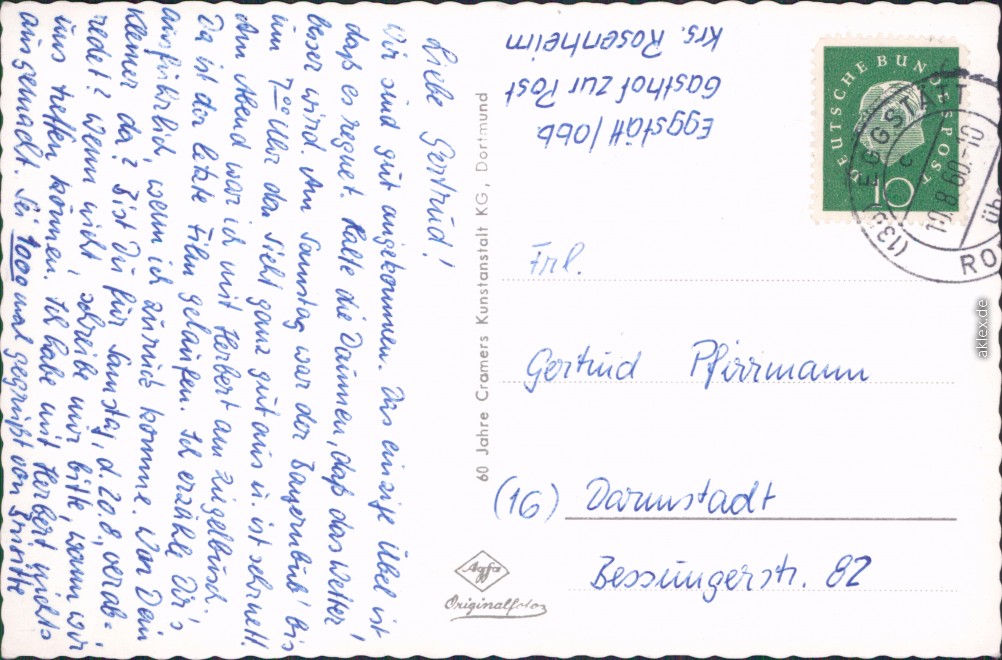 Eggstätt/Obb
Gasthof zur Post
Krs. Rosenheim
Liebe Gertrud!
Wir sind gut angekommen. Das einzige Übel ist
daß es regnet. Halte die Daumen, daß das Wetter
besser wird. Am Samstag war der Bayernbub' bis
um 7ºº Uhr da. Sieht ganz gut aus u. ist schnell.
Am Abend war ich mit Herbert am
Da ist der letzte Film gelaufen. Ich erzähle Dir's
ausführlich, wenn ich zurück komme. War Dein
Kleiner da? Bist Du für Samstag, d. 20.8., verab-
redet? Wenn nicht schreibe mir bitte, wann wir
uns treffen können. Ich habe mit Herbert nichts
ausgemacht. Sei 1000 mal gegrüßt von Brigitte
60 Jahre Cramers Kunstanstalt KG, Dortmund
Agfa
Originalfoto
DEUTSCHE BUNDESPOST
10
(13b) EGGSTÄTT
c
10.8.60.-10
übe
RO
Frl.
Gertrud Pfirrmann
(16) Darmstadt
Bessungerstr. 82
aklex.de